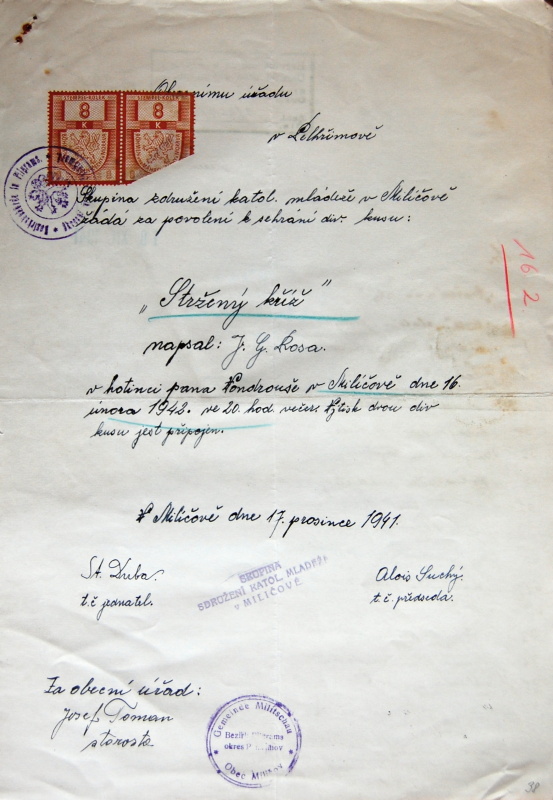 STEMPEL-KOLEK STEMPEL-KOLEK
8 8
K K
úřadu
v Pelhřimově
Skupina združení katol. mládeže v Miličově
žádá za povolení k sehrání div. kusu:
16 2
„Stržený kříž"
napsal: J. G. Rosa.
v hotinci pana Vondrouše v Miličově dne 16.
února 1942. ve 20. hod. večer. Výtisk dvou div
kusu jest připojen.
V Miličově dne 17. prosince 1941.
St. Duba.
t.č. jednatel.
SKUPINA
SDRUŽENÍ KATOL. MLÁDEŽE
v MILIČOVĚ
Alois Suchý
t.č. předseda.
Za obecní úřad:
Josef Toman
starosta
Gemeinde Militschau
Bezirk
okres
Obec
98